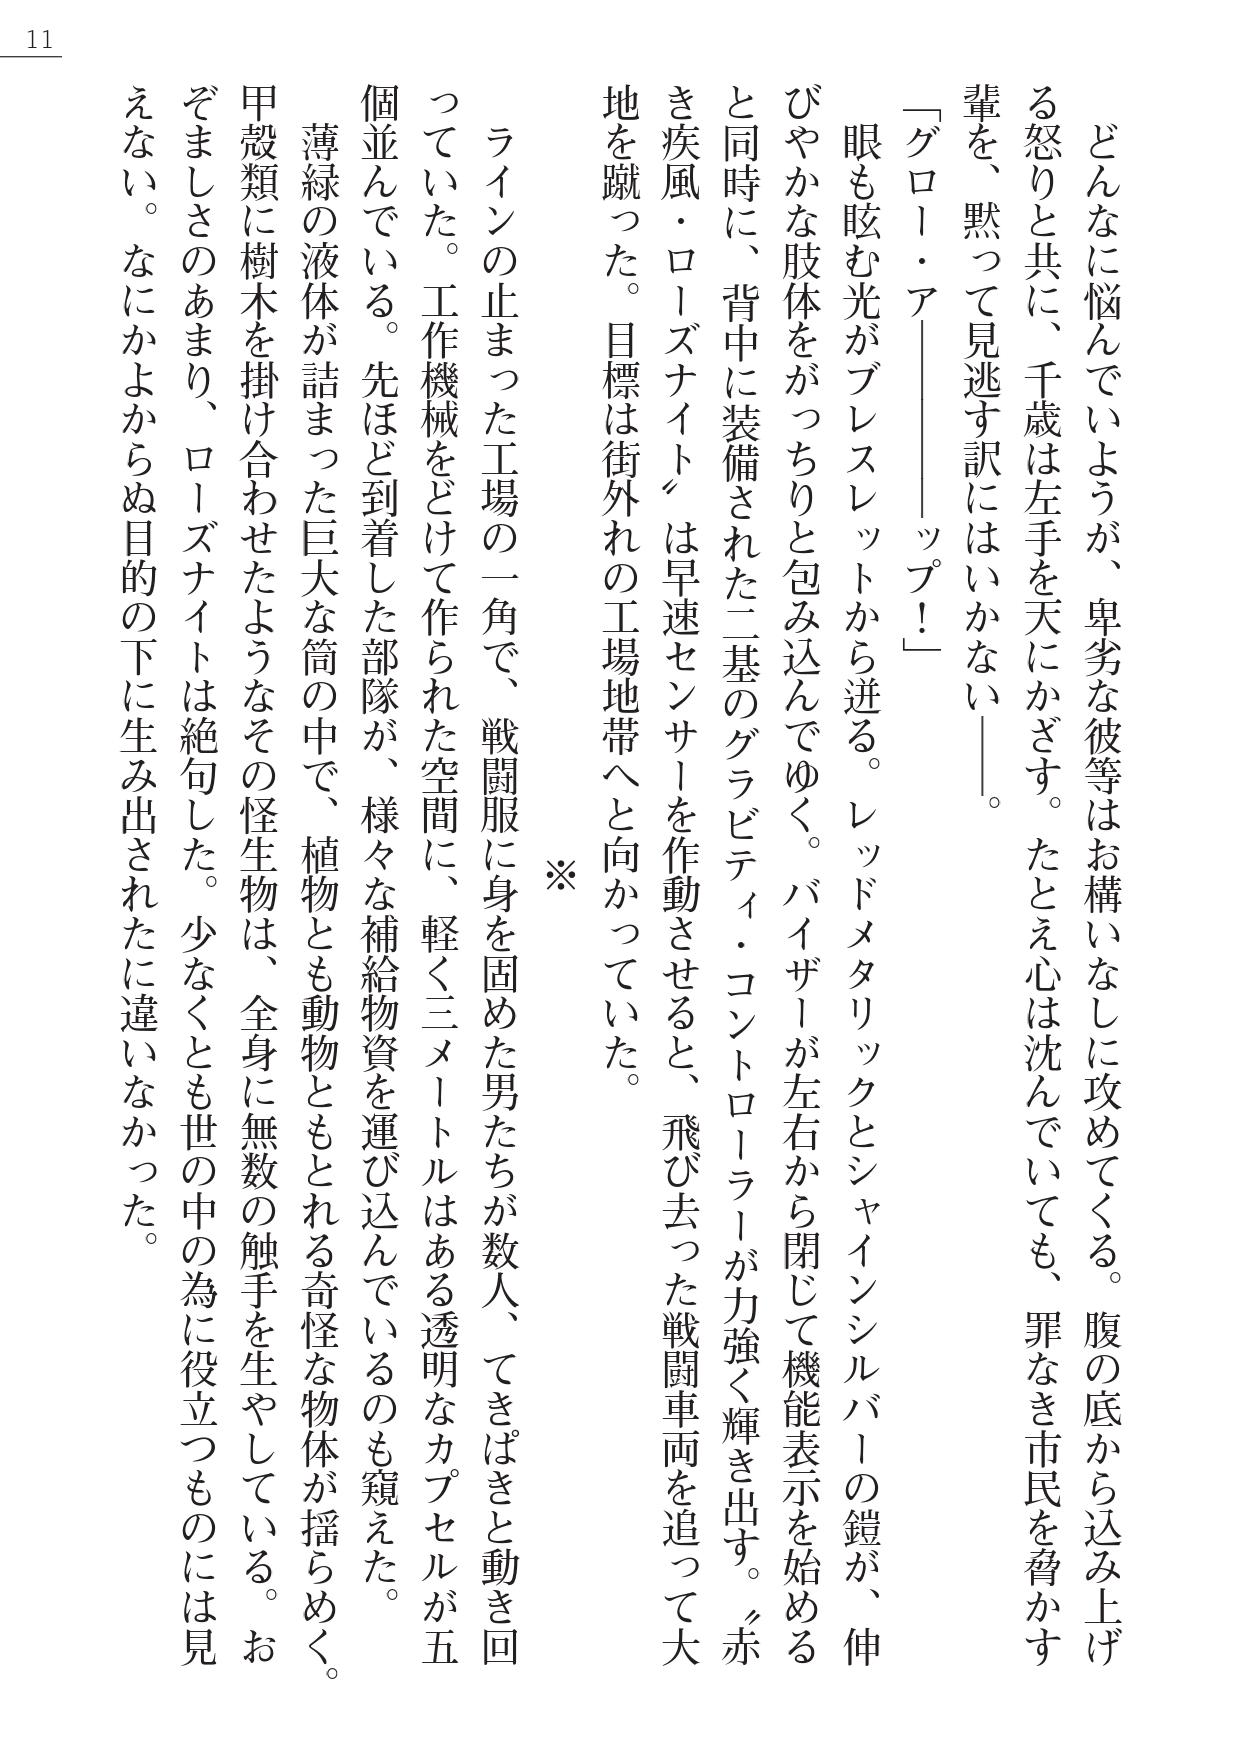 11
　どんなに悩んでいようが、卑劣な彼等はお構いなしに攻めてくる。腹の底から込み上げ
る怒りと共に、千歳は左手を天にかざす。たとえ心は沈んでいても、罪なき市民を脅かす
輩を、黙って見逃す訳にはいかない――。
「グロー・ア―――――ップ！」
　眼も眩む光がブレスレットから迸る。レッドメタリックとシャインシルバーの鎧が、伸
びやかな肢体をがっちりと包み込んでゆく。バイザーが左右から閉じて機能表示を始める
と同時に、背中に装備された二基のグラビティ・コントローラーが力強く輝き出す。〝赤
き疾風・ローズナイト〟は早速センサーを作動させると、飛び去った戦闘車両を追って大
地を蹴った。目標は街外れの工場地帯へと向かっていた。
※
　ラインの止まった工場の一角で、戦闘服に身を固めた男たちが数人、てきぱきと動き回
っていた。工作機械をどけて作られた空間に、軽く三メートルはある透明なカプセルが五
個並んでいる。先ほど到着した部隊が、様々な補給物資を運び込んでいるのも窺えた。
　薄緑の液体が詰まった巨大な筒の中で、植物とも動物ともとれる奇怪な物体が揺らめく。
甲殻類に樹木を掛け合わせたようなその怪生物は、全身に無数の触手を生やしている。お
ぞましさのあまり、ローズナイトは絶句した。少なくとも世の中の為に役立つものには見
えない。なにかよからぬ目的の下に生み出されたに違いなかった。